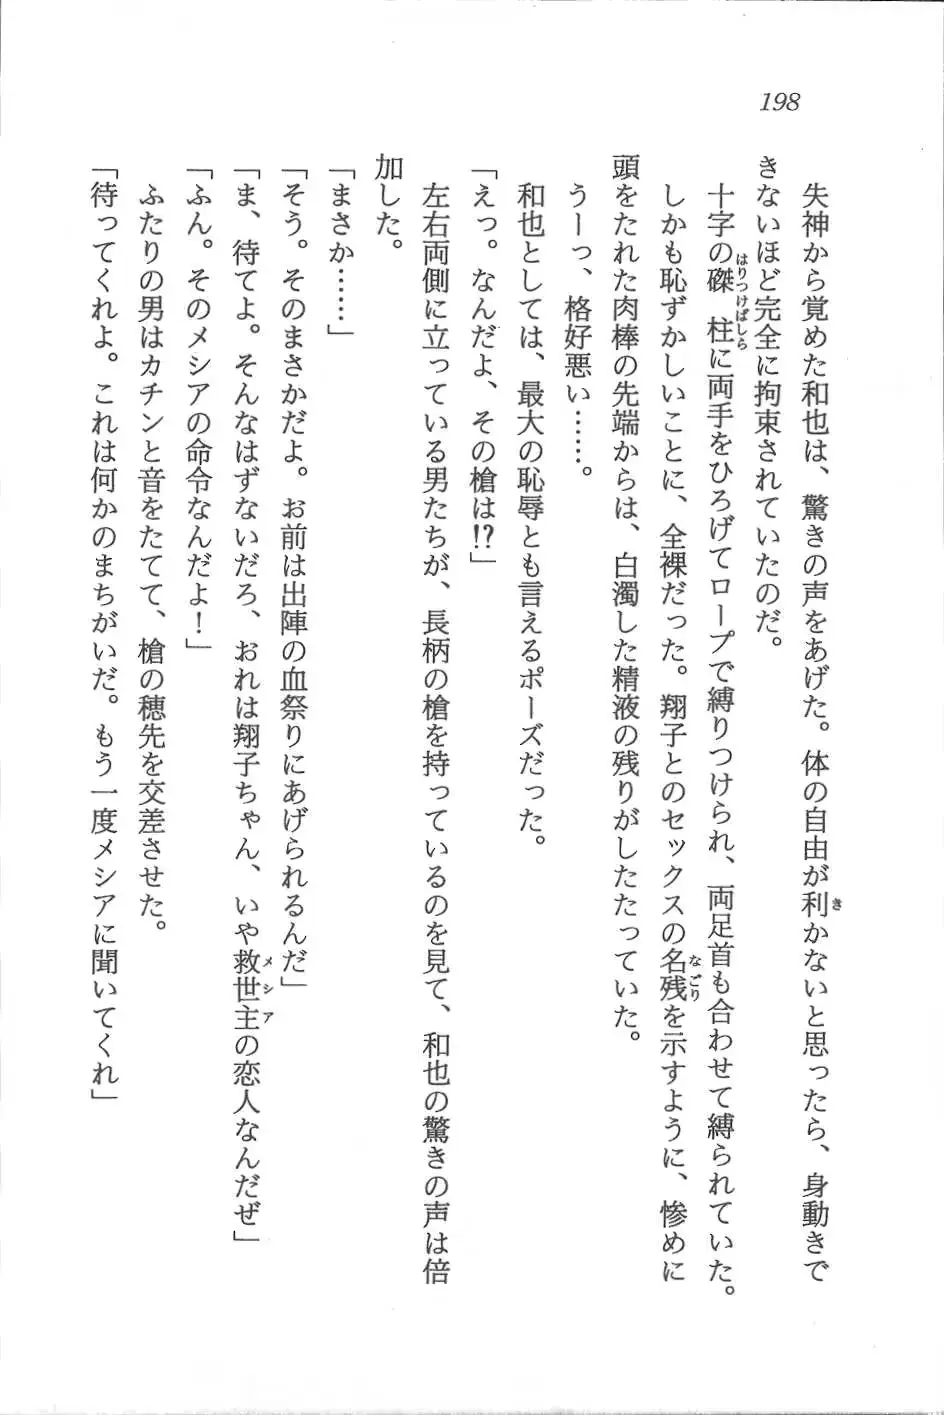 198
失神から覚めた和也は、驚きの声をあげた。体の自由が利かないと思ったら、身動きで
きないほど完全に拘束されていたのだ。
十字の磔柱に両手をひろげてロープで縛りつけられ、両足首も合わせて縛られていた。
しかも恥ずかしいことに、全裸だった。翔子とのセックスの名残を示すように、惨めに
頭をたれた肉棒の先端からは、白濁した精液の残りがしたたっていた。
うーっ、格好悪い……。
和也としては、最大の恥辱とも言えるポーズだった。
「えっ。なんだよ、その槍は!?」
左右両側に立っている男たちが、長柄の槍を持っているのを見て、和也の驚きの声は倍
加した。
「まさか……」
「そう。そのまさかだよ。お前は出陣の血祭りにあげられるんだ」
「ま、待てよ。そんなはずないだろ、おれは翔子ちゃん、いや救世主の恋人なんだぜ」
「ふん。そのメシアの命令なんだよ！」
ふたりの男はカチンと音をたてて、槍の穂先を交差させた。
「待ってくれよ。これは何かのまちがいだ。もう一度メシアに聞いてくれ」
き
はりつけばしら
なごり
メシア